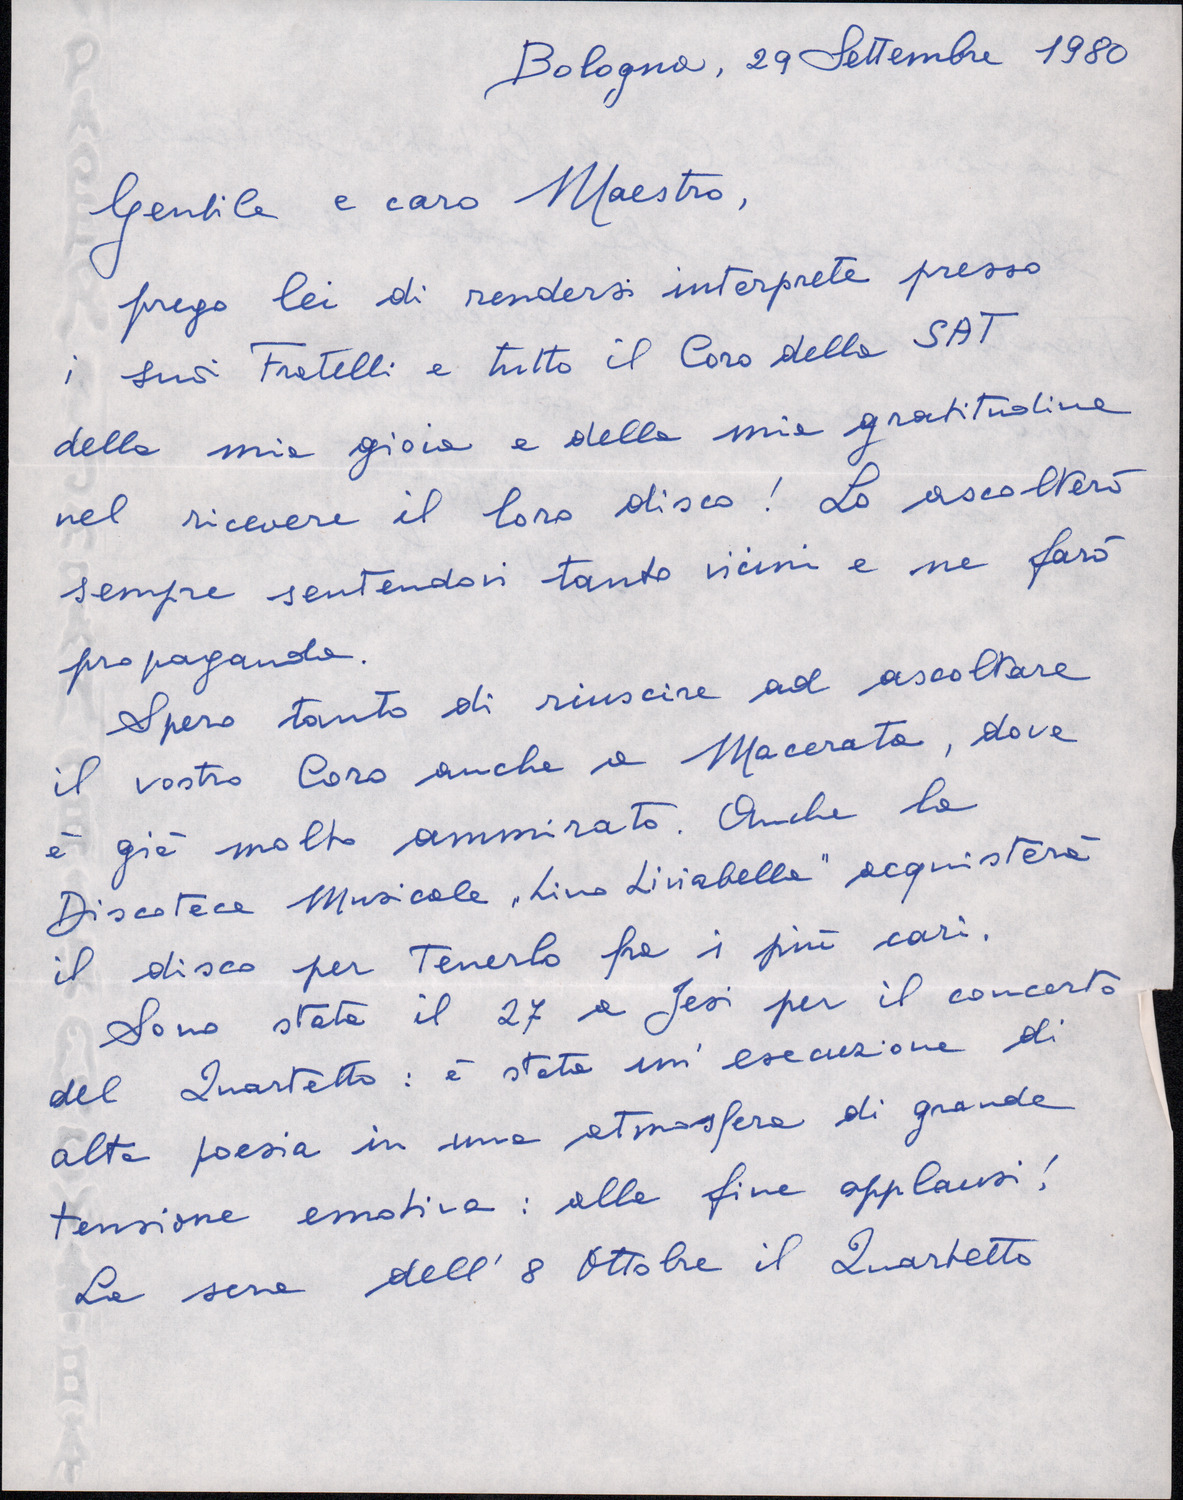 Bologna, 29 Settembre 1980
Gentile e caro Maestro,
prego lei di rendersi interprete presso
i suoi Fratelli e tutto il Coro della SAT
della mia gioia e della mia gratitudine
nel ricevere il loro disco! Lo ascolterò
sempre sentendovi tanto vicini e ne farò
propaganda.
Spero tanto di riuscire ad ascoltare
il vostro Coro anche a Macerata, dove
è già molto ammirato. Anche la
Discoteca Musicale „Lino Liviabella" acquisterà
il disco per tenerlo fra i più cari.
Sono stata il 27 a Jesi per il concerto
del Quartetto: è stata un'esecuzione di
alta poesia in una atmosfera di grande
tensione emotiva: alla fine applausi!
La sera dell'8 Ottobre il Quartetto